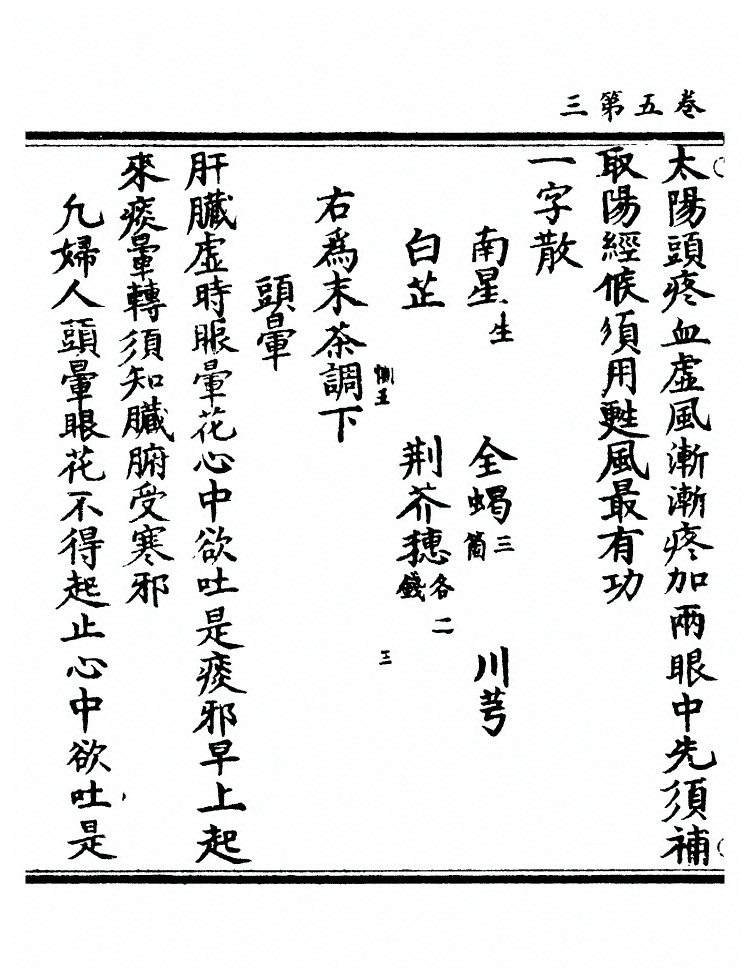 卷五第三
太陽頭疼血虛風漸漸疼加兩眼中先須補
取陽經候須用甦風最有功
一字散
南星生　全蝎三箇　川芎
白芷　荆芥穗各二錢
右為末茶調下
頭暈
肝臟虛時眼暈花心中欲吐是痰邪早上起
來痰暈轉須知臟腑受寒邪
凢婦人頭暈眼花不得起止心中欲吐是